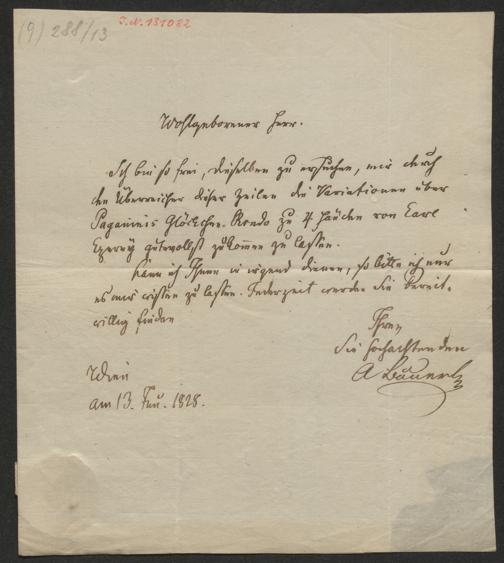 (9) 288/13
I.N. 131082
Wohlgeborener Herr.
Ich bin so frei, dieselben zu ersuchen, mir durch
den Überreicher dieser Zeilen die Variationen über
Paganinis Glöckchen-Rondo zu 4 Händen von Carl
Czerny gütevollst zukommen zu lassen.
Kann ich Ihnen in irgend dienen, so bitte ich nur
es mir wissen zu lassen. Jederzeit werden Sie bereit-
willig finden
Ihren
Sie hochachtenden
A Bäuerle
Wien
am 13. Jun. 1828.